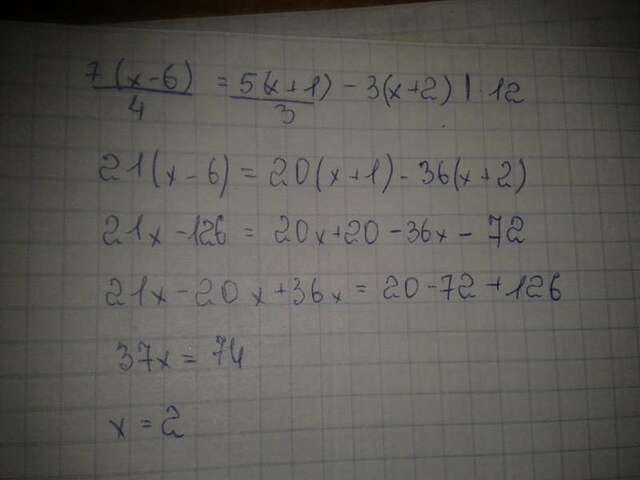 7(x-6)/4 = 5(x+1)/3 - 3(x+2) | · 12
21(x-6) = 20(x+1) - 36(x+2)
21x - 126 = 20x + 20 - 36x - 72
21x - 20x + 36x = 20 - 72 + 126
37x = 74
x = 2